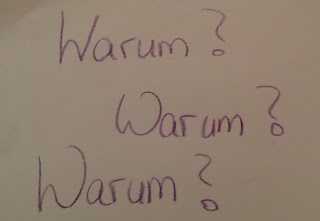 Warum?
Warum?
Warum?